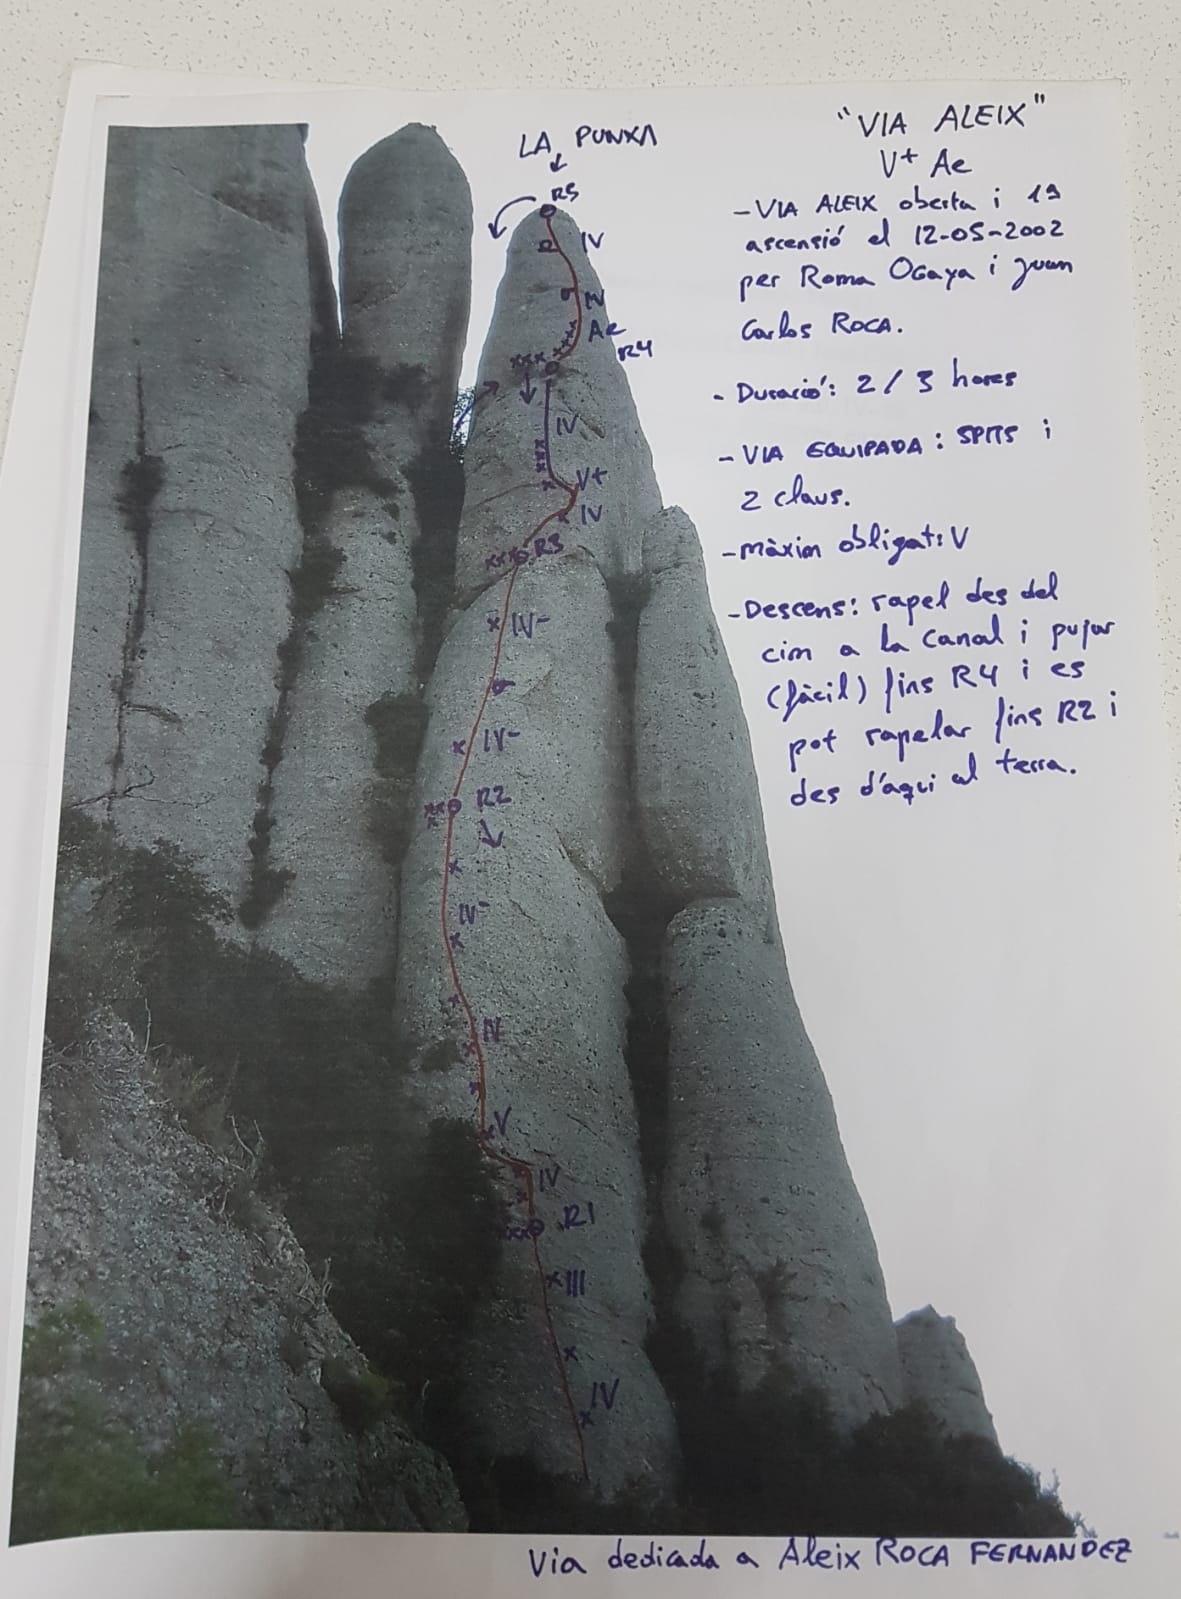 "VIA ALEIX"
V+ Ae
LA PUNXA
- VIA ALEIX oberta i 1ª
ascensió el 12-05-2002
per Roma Ogaya i Juan
Carlos ROCA.
- Duració: 2 / 3 hores
- VIA EQUIPADA: SPITS i
2 claus.
- màxim obligat: V
- Descens: rapel des del
cim a la canal i pujar
(fàcil) fins R4 i es
pot rapelar fins R2 i
des d'aqui al terra.
R5
IV
IV
Ae
R4
IV
V+
IV
R3
IV-
IV-
R2
IV-
IV
V
IV
R1
III
IV
Via dedicada a Aleix ROCA FERNANDEZ